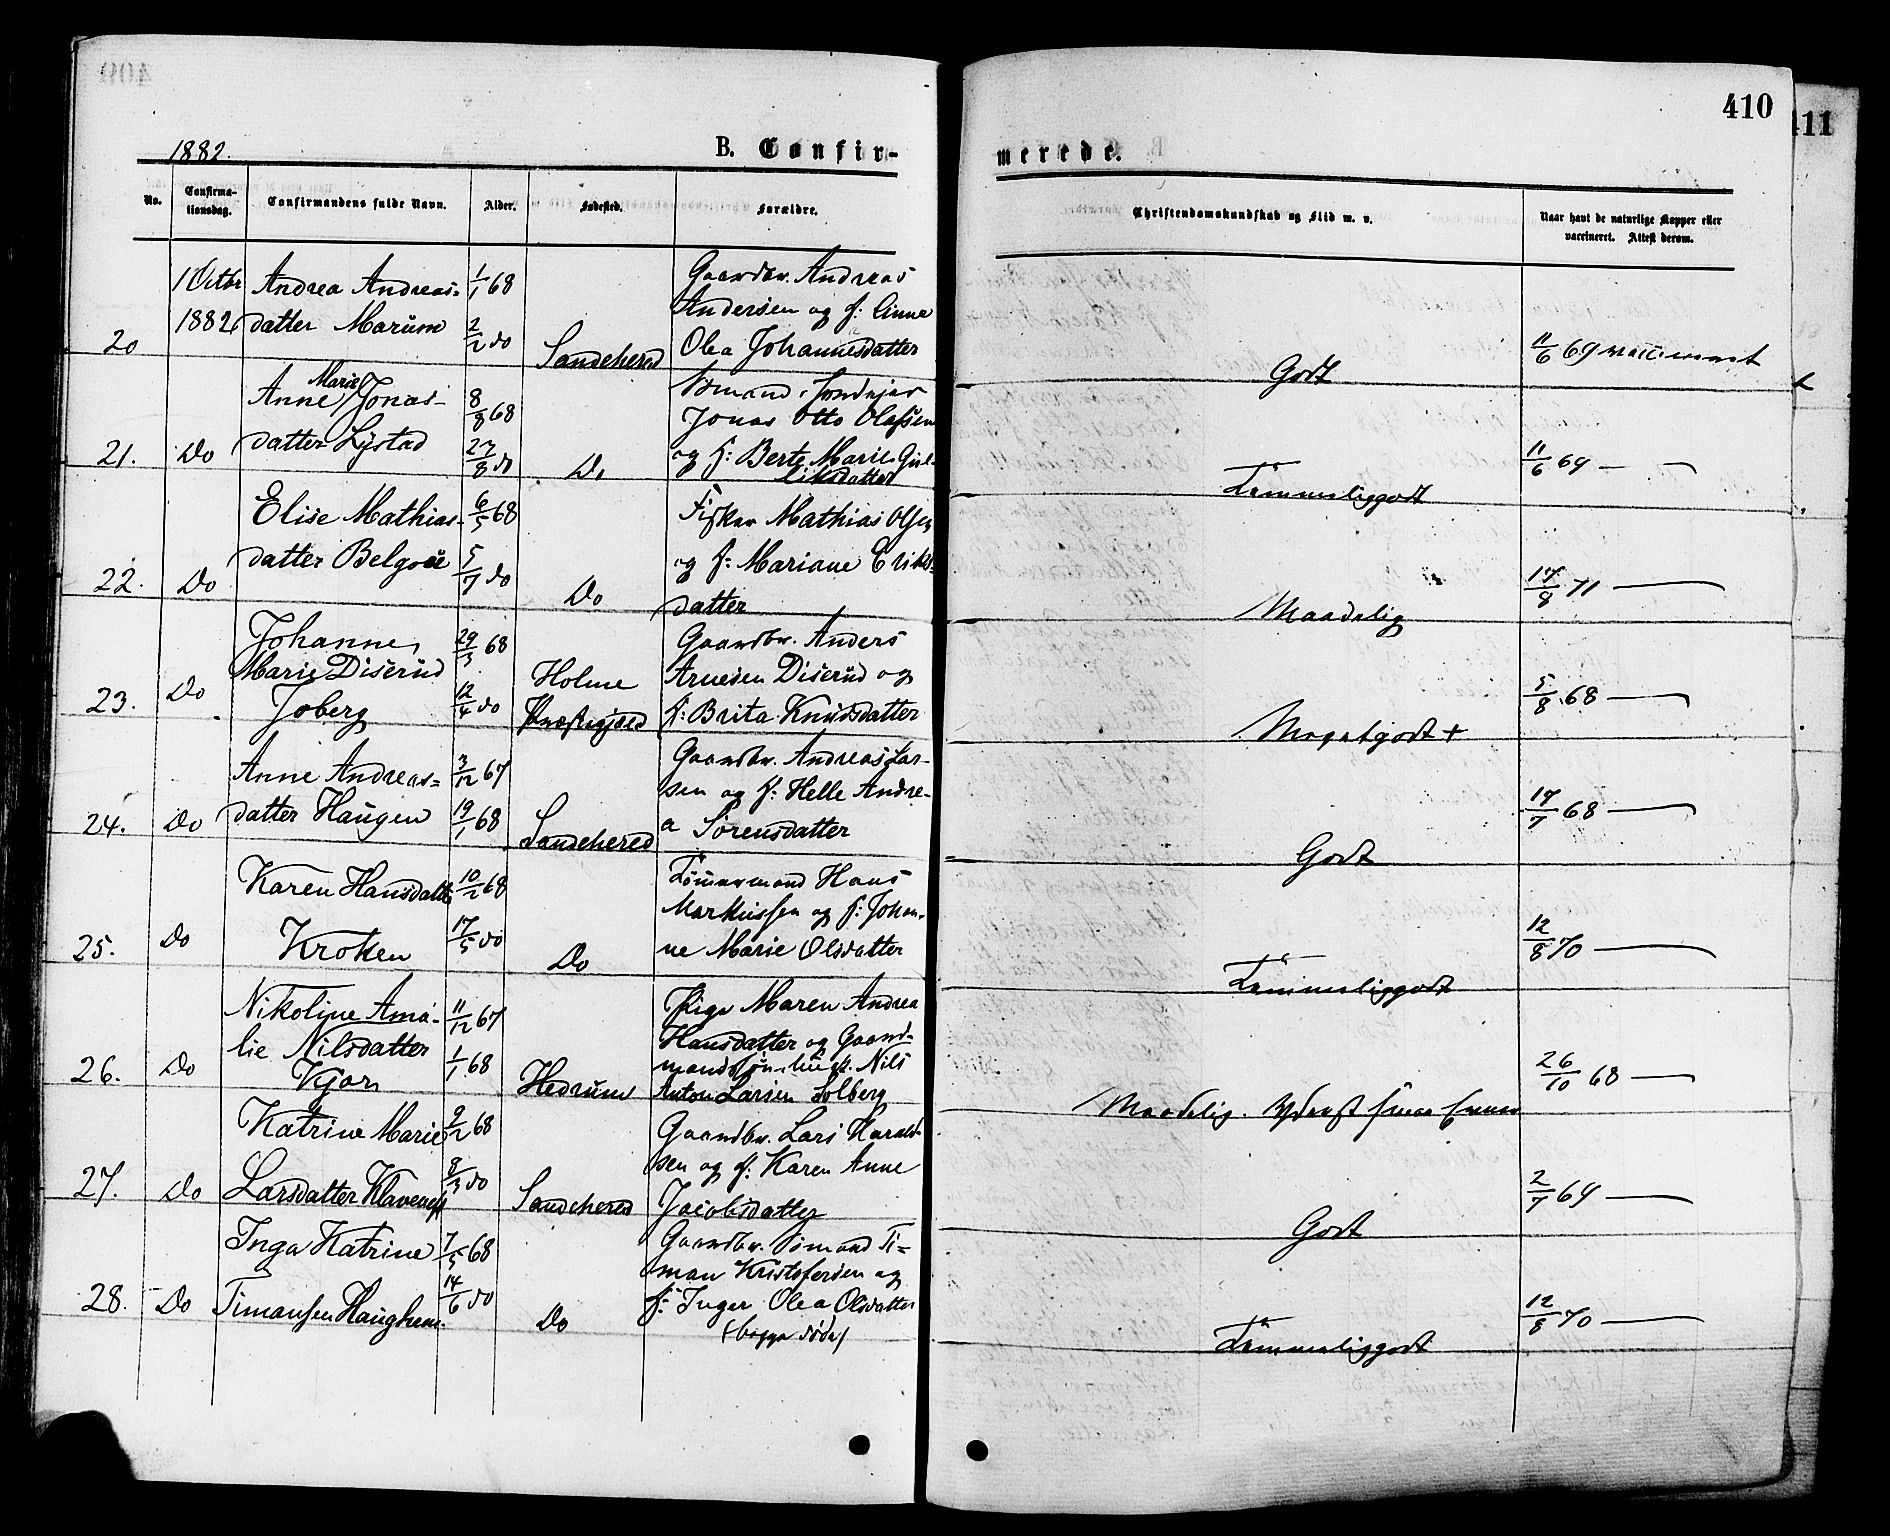 410
411
1882.
B. Confir-
merede.
No.
Confirma-
tionsdag.
Confirmandens fulde Navn.
Alder.
Fødested.
Forældre.
Christendomskundskab og Flid m. v.
Naar havt de naturlige Kopper eller
vaccineret. Attest derom.
20
1 Octbr
1882
Andrea Andreas-
datter Marum
1/1 68
2/2 do
Sandehered
Gaardbr. Andreas
Andersen og f: Anne
Olea Johannesdatter
Godt
11/6 69 vaccineret
21.
Do
Anne Marie Jonas-
datter Lystad
8/8 68
23/8 do
Do
Sømand
Jonas Otto Olafsen
og f: Berte Marie Gul-
liksdatter
Temmeliggodt
11/6 69 —
22.
Do
Elise Mathias-
datter Belgoe
6/5 68
5/7 do
Do
Fisker Mathias Olsen
og f: Mariane Eriks-
datter
Maadelig
17/8 71 —
23.
Do
Johanne
Marie Diserud
Joberg
29/3 68
12/4 do
Holme
Præstegjæld
Gaardbr. Anders
Arnesen Diserud og
f: Brita Knudsdatter
Megetgodt +
5/8 68 —
24.
Do
Anne Andreas-
datter Haugen
3/12 67
19/1 68
Sandehered
Gaardbr. Andreas Lar-
sen og f: Helle Andre-
a Sørensdatter
Godt
17/7 68 —
25.
Do
Karen Hansdatt
Kroken
10/2 68
17/5 do
Do
Tømmermand Hans
Markussen og f: Johan-
ne Marie Olsdatter
Temmeliggodt
12/8 70 —
26.
Do
Nikoline Ama-
lie Nilsdatter
Kjær
11/12 67
1/1 68
Hedrum
Pige Maren Andrea
Hansdatter og Gaard-
mandssøn Nils
Anton Larsen Solberg
Maadelig. Yderst smaa Evner
26/10 68 —
27.
Do
Katrine Marie
Larsdatter Klavenes
9/2 68
8/3 do
Sandeherred
Gaardbr. Lars Harald-
sen og f: Karen Anne
Jacobsdatter
Godt
2/7 69 —
28.
Do
Inga Katrine
Timansen Haughem.
7/5 68
14/6 do
Do
Gaardbr. Sømand Ti-
man Kristofersen og
f: Inger Olea Olsdatter
(begge døde)
Temmeliggodt
12/8 70 —